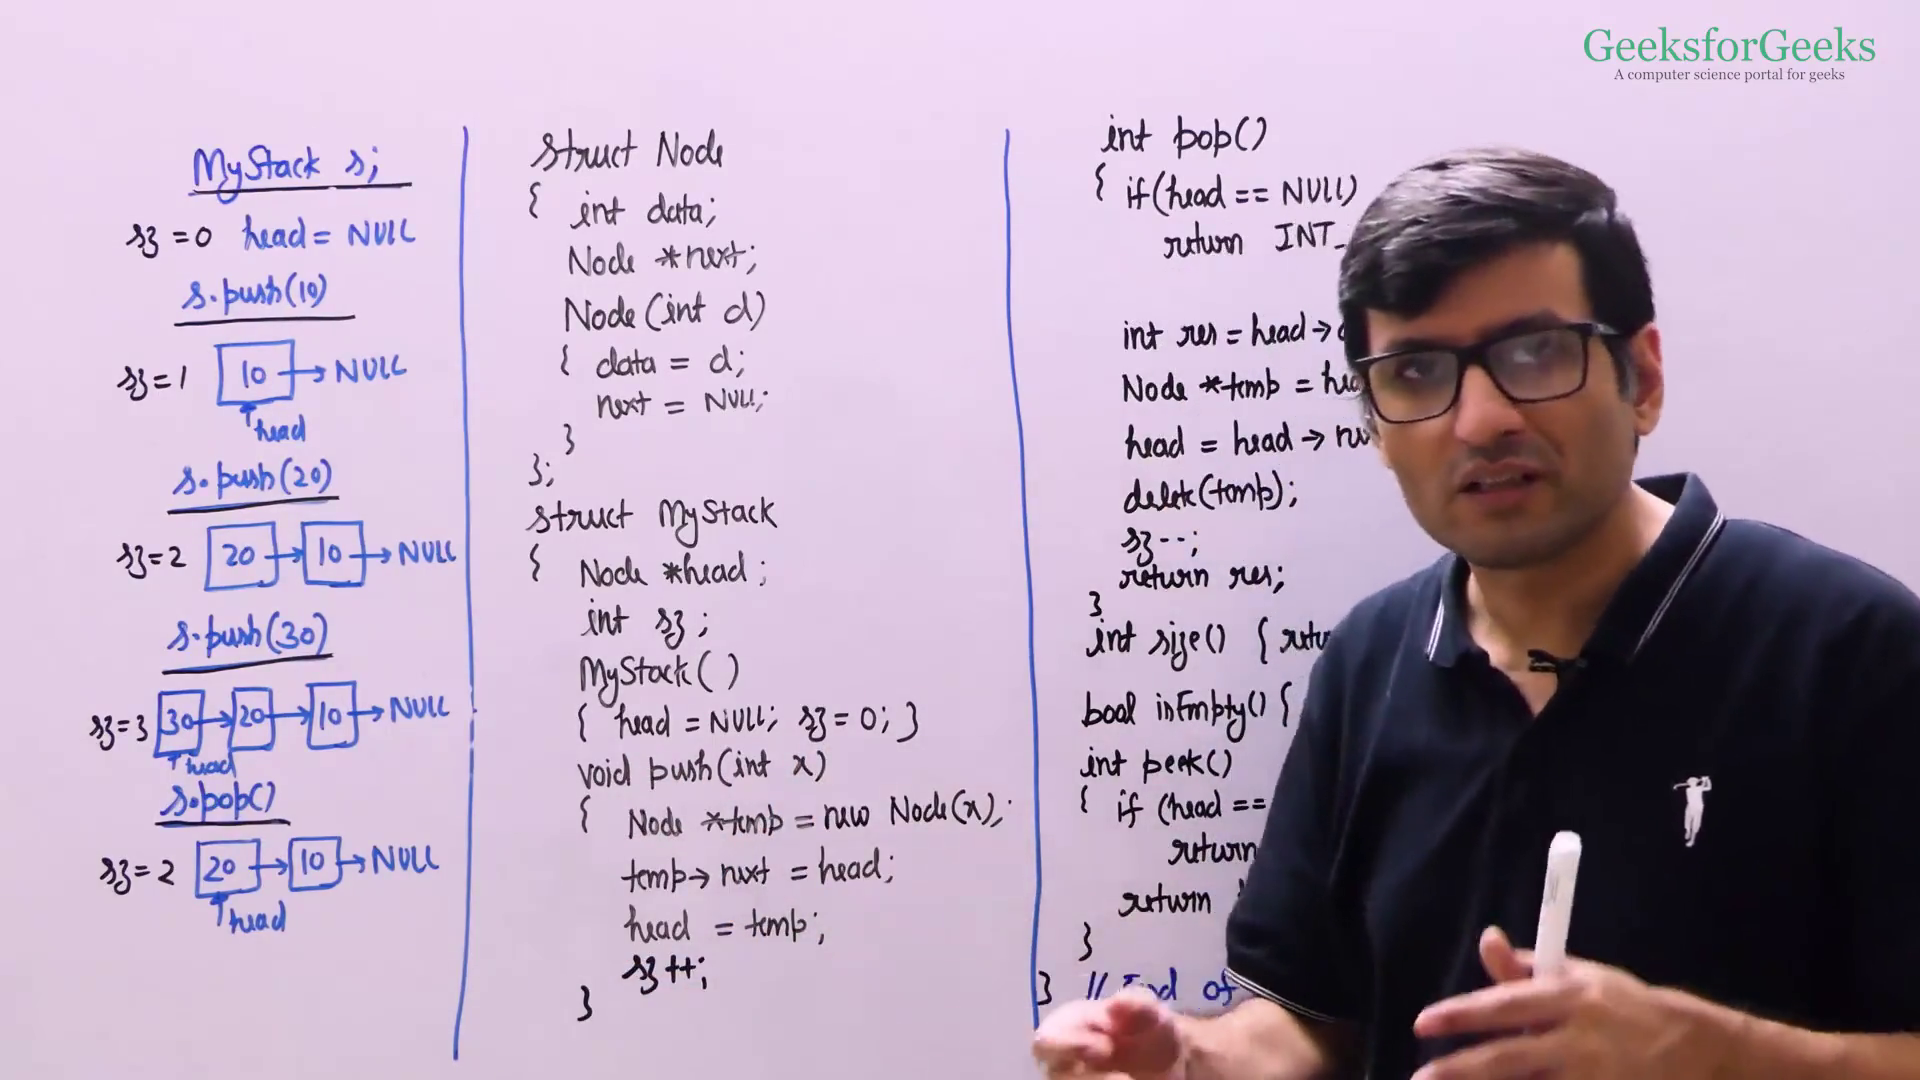 GeeksforGeeks
A computer science portal for geeks
MyStack s;
sz = 0 head = NULL
s.push(10)
sz = 1 10 → NULL
head
s.push(20)
sz = 2 20 → 10 → NULL
s.push(30)
sz = 3 30 → 20 → 10 → NULL
head
s.pop()
sz = 2 20 → 10 → NULL
head
struct Node
{ int data;
Node *next;
Node (int d)
{ data = d;
next = NULL;
}
};
struct MyStack
{ Node *head;
int sz;
MyStack()
{ head = NULL; sz = 0; }
void push(int x)
{ Node *temp = new Node(x);
temp → next = head;
head = temp;
sz++;
}
int pop()
{ if(head == NULL)
return INT_
int res = head →
Node *temp =
head = head →
delete(temp);
sz--;
return res;
}
int size() {
bool isEmpty() {
int peek()
{ if (head ==
return
return
}
} // End of